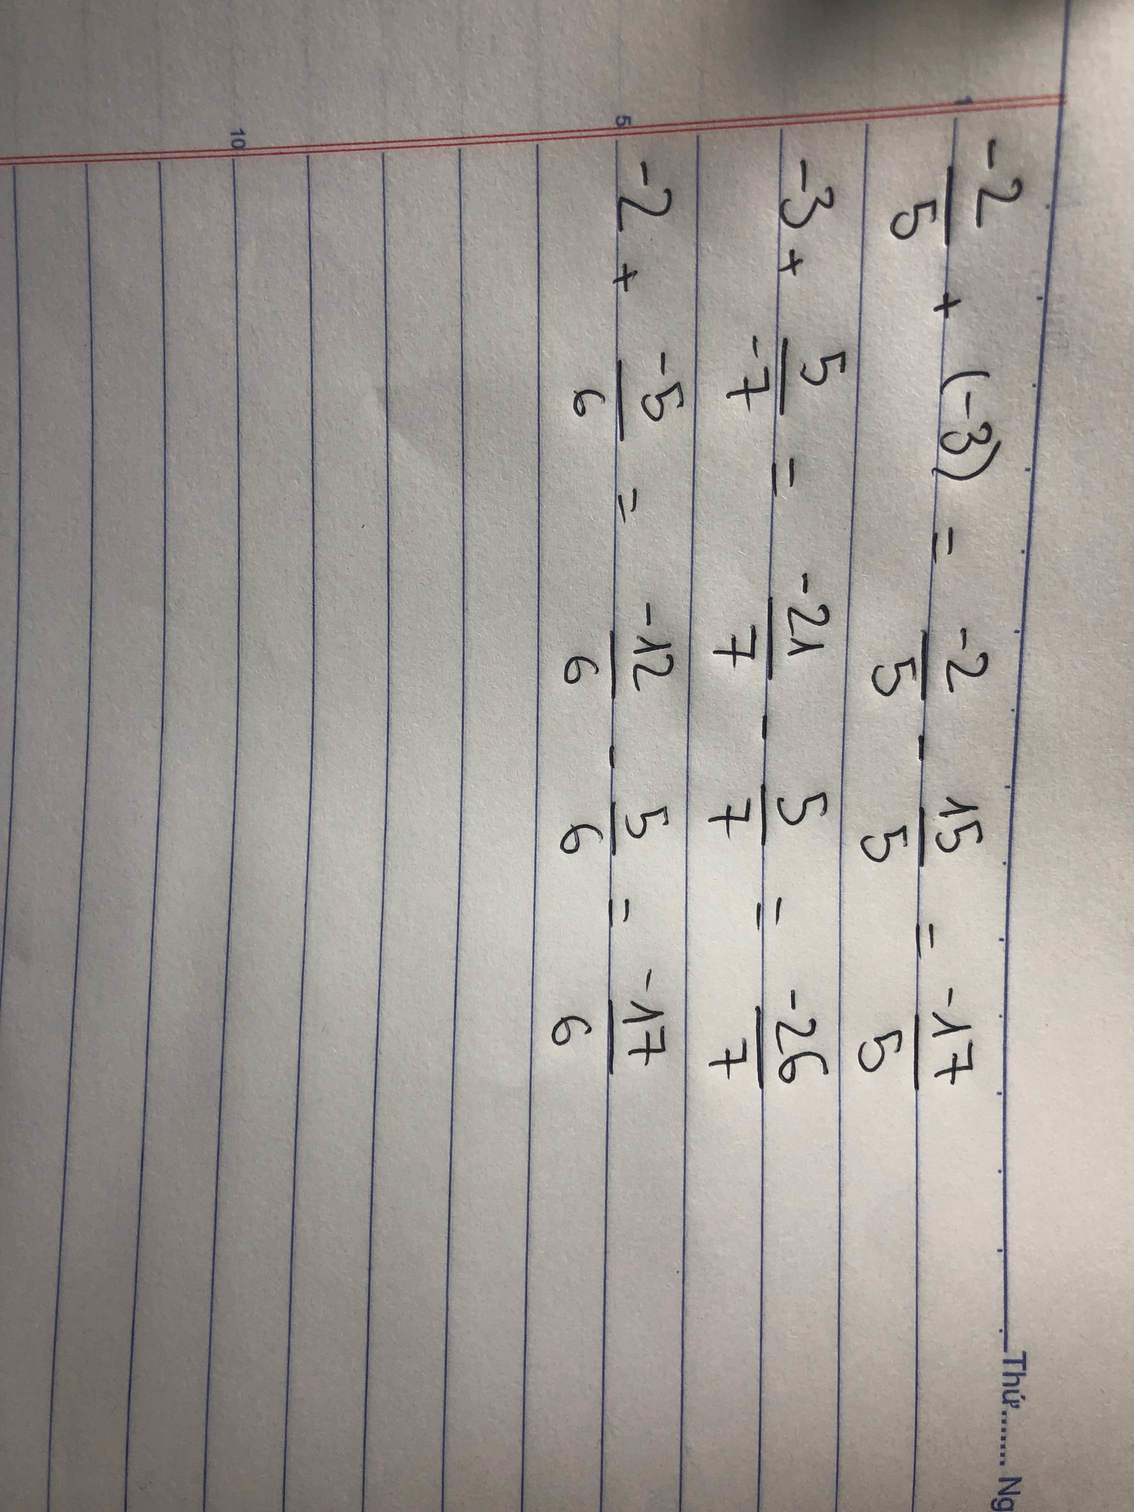 Thứ........ Ng
1
-2/5 + (-3) = -2/5 - 15/5 = -17/5
-3 + 5/-7 = -21/7 - 5/7 = -26/7
5
-2 + -5/6 = -12/6 - 5/6 = -17/6
10